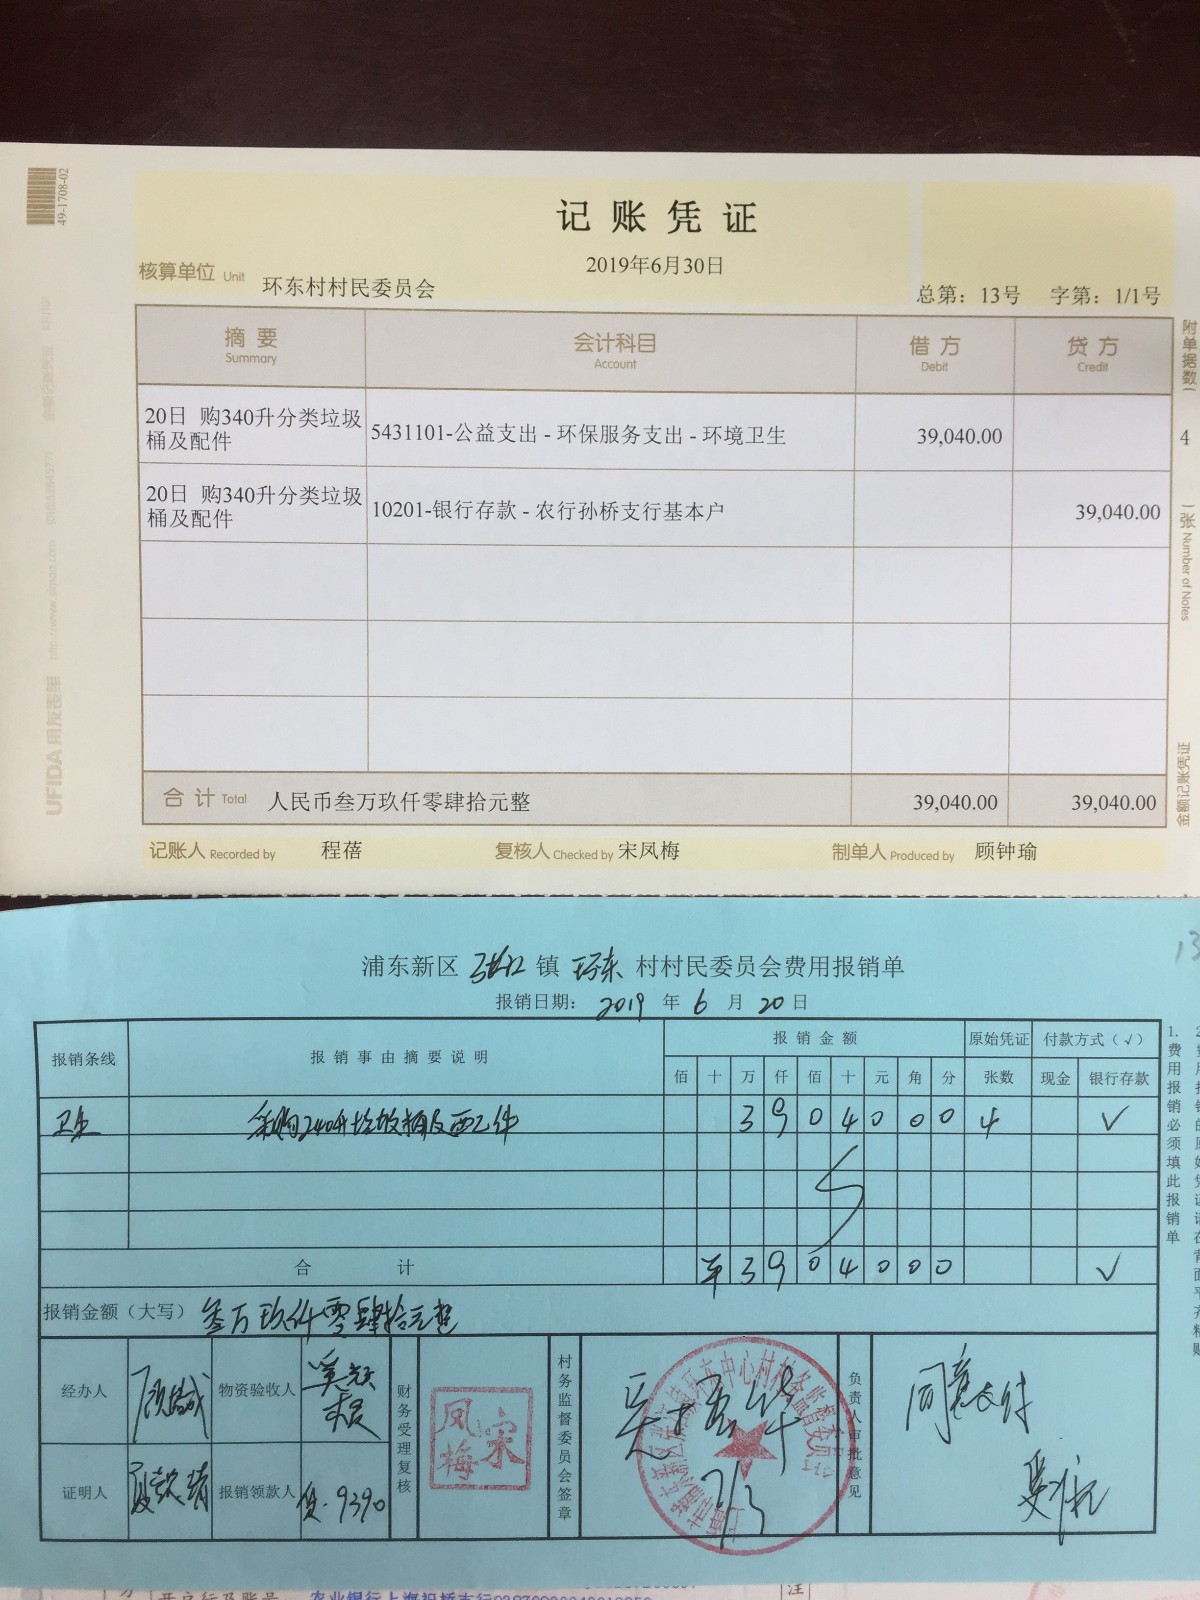 49-1708-02
记账凭证
2019年6月30日
核算单位 Unit 环东村村民委员会
总第：13号 字第：1/1号
摘要 会计科目 借方 贷方
Summary Account Debit Credit
20日 购340升分类垃圾
桶及配件
5431101-公益支出 - 环保服务支出 - 环境卫生 39,040.00
20日 购340升分类垃圾
桶及配件
10201-银行存款 - 农行孙桥支行基本户 39,040.00
合计 Total 人民币叁万玖仟零肆拾元整 39,040.00 39,040.00
记账人 Recorded by 程蓓 复核人 Checked by 宋凤梅 制单人 Produced by 顾钟瑜
附单据数（ 4 ）张 Number of Notes
金额记账凭证
UFIDA 用友表单
13
浦东新区 张江 镇 环东 村村民委员会费用报销单
报销日期： 2019 年 6 月 20 日
报销条线 报销事由摘要说明 报销金额 原始凭证 付款方式（√）
佰 十 万 仟 佰 十 元 角 分 张数 现金 银行存款
卫生 采购240升垃圾桶及配件 3 9 0 4 0 0 0 4 √
合计 ¥ 3 9 0 4 0 0 0 √
报销金额（大写） 叁万玖仟零肆拾元整
经办人 物资验收人
证明人 报销领款人 9390
财务受理复核
宋凤梅
村务监督委员会签章
7/3
负责人审批意见
同意支付
1.费用报销必须填此报销单
开户行及账号
注